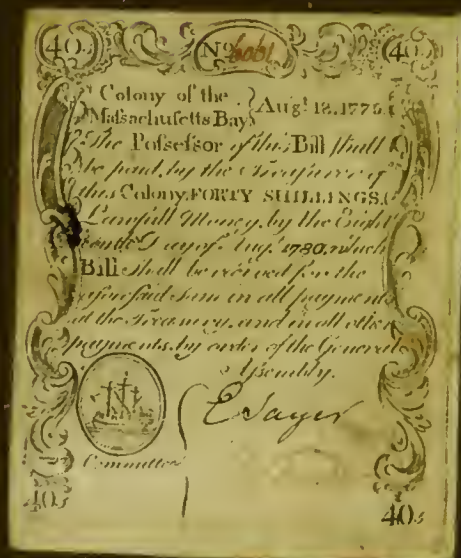 40s No 6061 40s
Colony of the
Maſsachuſetts Bay } Augt 18. 1775.
The Poſseſsor of this Bill ſhall
be paid, by the Treaſurer of
this Colony, FORTY SHILLINGS.
Lawfull Money, by the Eight
Day of Augt 1780, which
Bill ſhall be received for the
aforeſaid Sum in all payments
at the Treaſury, and in all other
payments, by order of the General
Aſsembly.
E Sayer
Committee
40s 40s